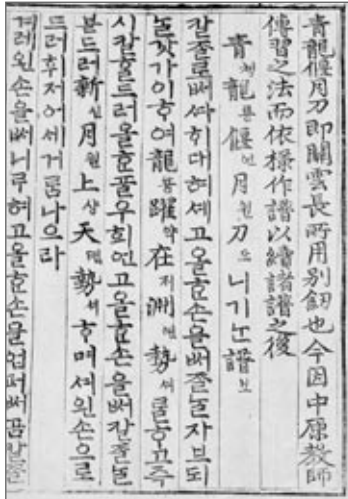 青龍偃月刀即關雲長所用別釰也今因中原教師
傳習之法而依樣作譜以續諸譜之後
青쳥龍룡偃언月월刀도니기ᄂᆞᆫ譜보
칼ᄌᆞᆯ로ᄡᅥᄯᅡ히다혀셰고올ᄒᆞᆫ손을ᄡᅥᄌᆞᆯ늘자브되
ᄂᆞᆯ갓가이ᄒᆞ여龍룡躍약在ᄌᆡ淵연勢셰ᄅᆞᆯᄒᆞ고주
시칼흘드러올ᄒᆞᆫ풀우희연고올ᄒᆞᆫ손을ᄡᅥ칼ᄌᆞᆯ늘
븓드러新신月월上샹天텬勢셰ᄒᆞ며셔왼손으로
드러후저어세거룸나으라
겨레왼손을ᄡᅥ니루혀고올ᄒᆞᆫ손을업퍼ᄡᅥ곰칼ᄌᆞᆯ